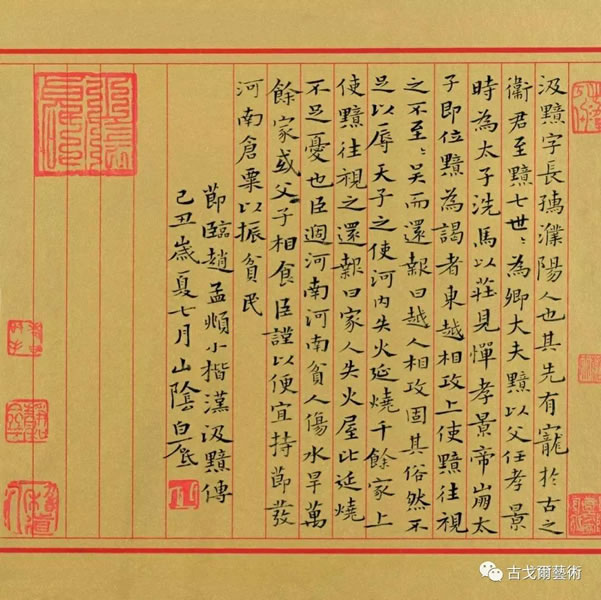 汲黯字長孺濮陽人也其先有寵於古之
衛君至黯七世〻為卿大夫黯以父任孝景
時為太子洗馬以莊見憚孝景帝崩太
子即位黯為謁者東越相攻上使黯往視
之不至〻吴而還報曰越人相攻固其俗然不
足以辱天子之使河内失火延燒千餘家上
使黯往視之還報曰家人失火屋比延燒
不足憂也臣過河南河南貧人傷水旱萬
餘家或父子相食臣謹以便宜持節發
河南倉粟以振貧民
節臨趙孟頫小楷漢汲黯傳
己丑歲夏七月山陰白
古戈爾藝術